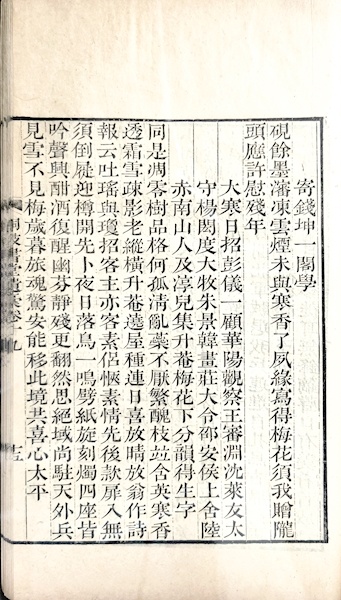 寄錢坤一閣學
硯餘墨瀋凍雲煙未與寒香了夙緣寫得梅花須我贈隴
頭應許慰殘年
大寒日招彭儀一顧華陽觀察王審淵沈萊友太
守楊閎度大牧朱景韓畫莊大令邵安侯上舍陸
赤南山人及淳兒集升菴梅花下分韻得生字
同是凋零樹品格何孤清亂藥不厭繁醜枝竝含英寒香
透霜雪疎影老縱橫升菴遶屋種連日喜放晴放翁作詩
報云吐瑤與瓊招客主亦客素侶愜素情先後款扉入無
須倒屣迎樽開先卜夜日落烏一鳴劈紙旋刻燭四座皆
吟聲興酣酒復醒幽芬靜殘更翻然思絕域尚駐天外兵
見雪不見梅歲暮旅魂驚安能移此境共喜心太平